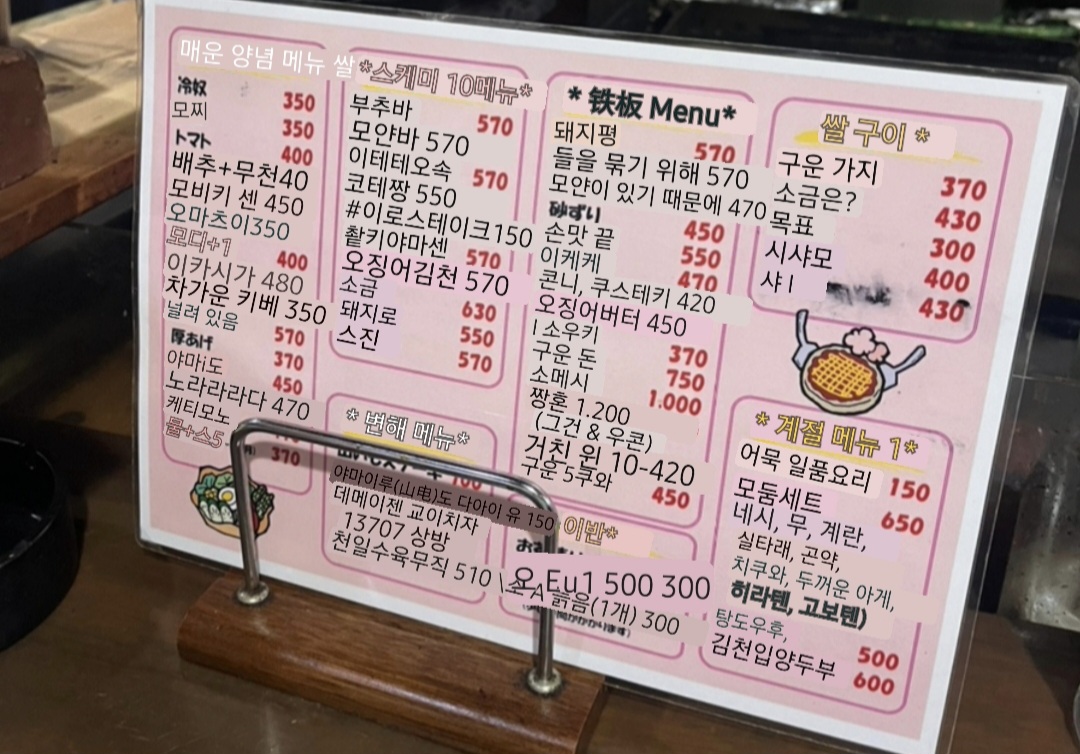 매운 양념 메뉴 쌀
冷奴 350
모찌 350
トマト 400
배추+무천40
모비키 센 450
오마츠이350
모디+1 400
이카시가 480
차가운 키베 350
널려 있음 570
厚あげ 370
야마i도 450
노라라라다 470
케티모노
물+스5 370
*스케미 10메뉴*
부추바 570
모얀바 570
이테테오속 570
코테짱 550
#이로스테이크150
촽키야마센 570
오징어김천 570
소금 630
돼지로 550
스진 570
* 변해 메뉴*
야마이루(山電)도 다아이 유 150
데메이젠 교이치자
13707 상방
천일수육무직 510
* 铁板 Menu*
돼지평 570
들을 묶기 위해 570
모얀이 있기 때문에 470
砂ずり 450
손맛 끝 550
이케케 470
콘니, 쿠스테키 420
오징어버터 450
I 소우키 370
구운 돈 750
소메시 1.000
짱혼 1.200
(그건 & 우콘)
거친 윈 10-420
구운 5쿠와 450
이반*
오 Eu1 500 300
굵음(1개) 300
쌀 구이 *
구운 가지 370
소금은? 430
목표 300
시샤모 400
샤ㅣ 430
* 계절 메뉴 1*
어묵 일품요리 150
모둠세트 650
네시, 무, 계란,
실타래, 곤약,
치쿠와, 두꺼운 아게,
히라텐, 고보텐)
탕도우후, 500
김천입양두부 600